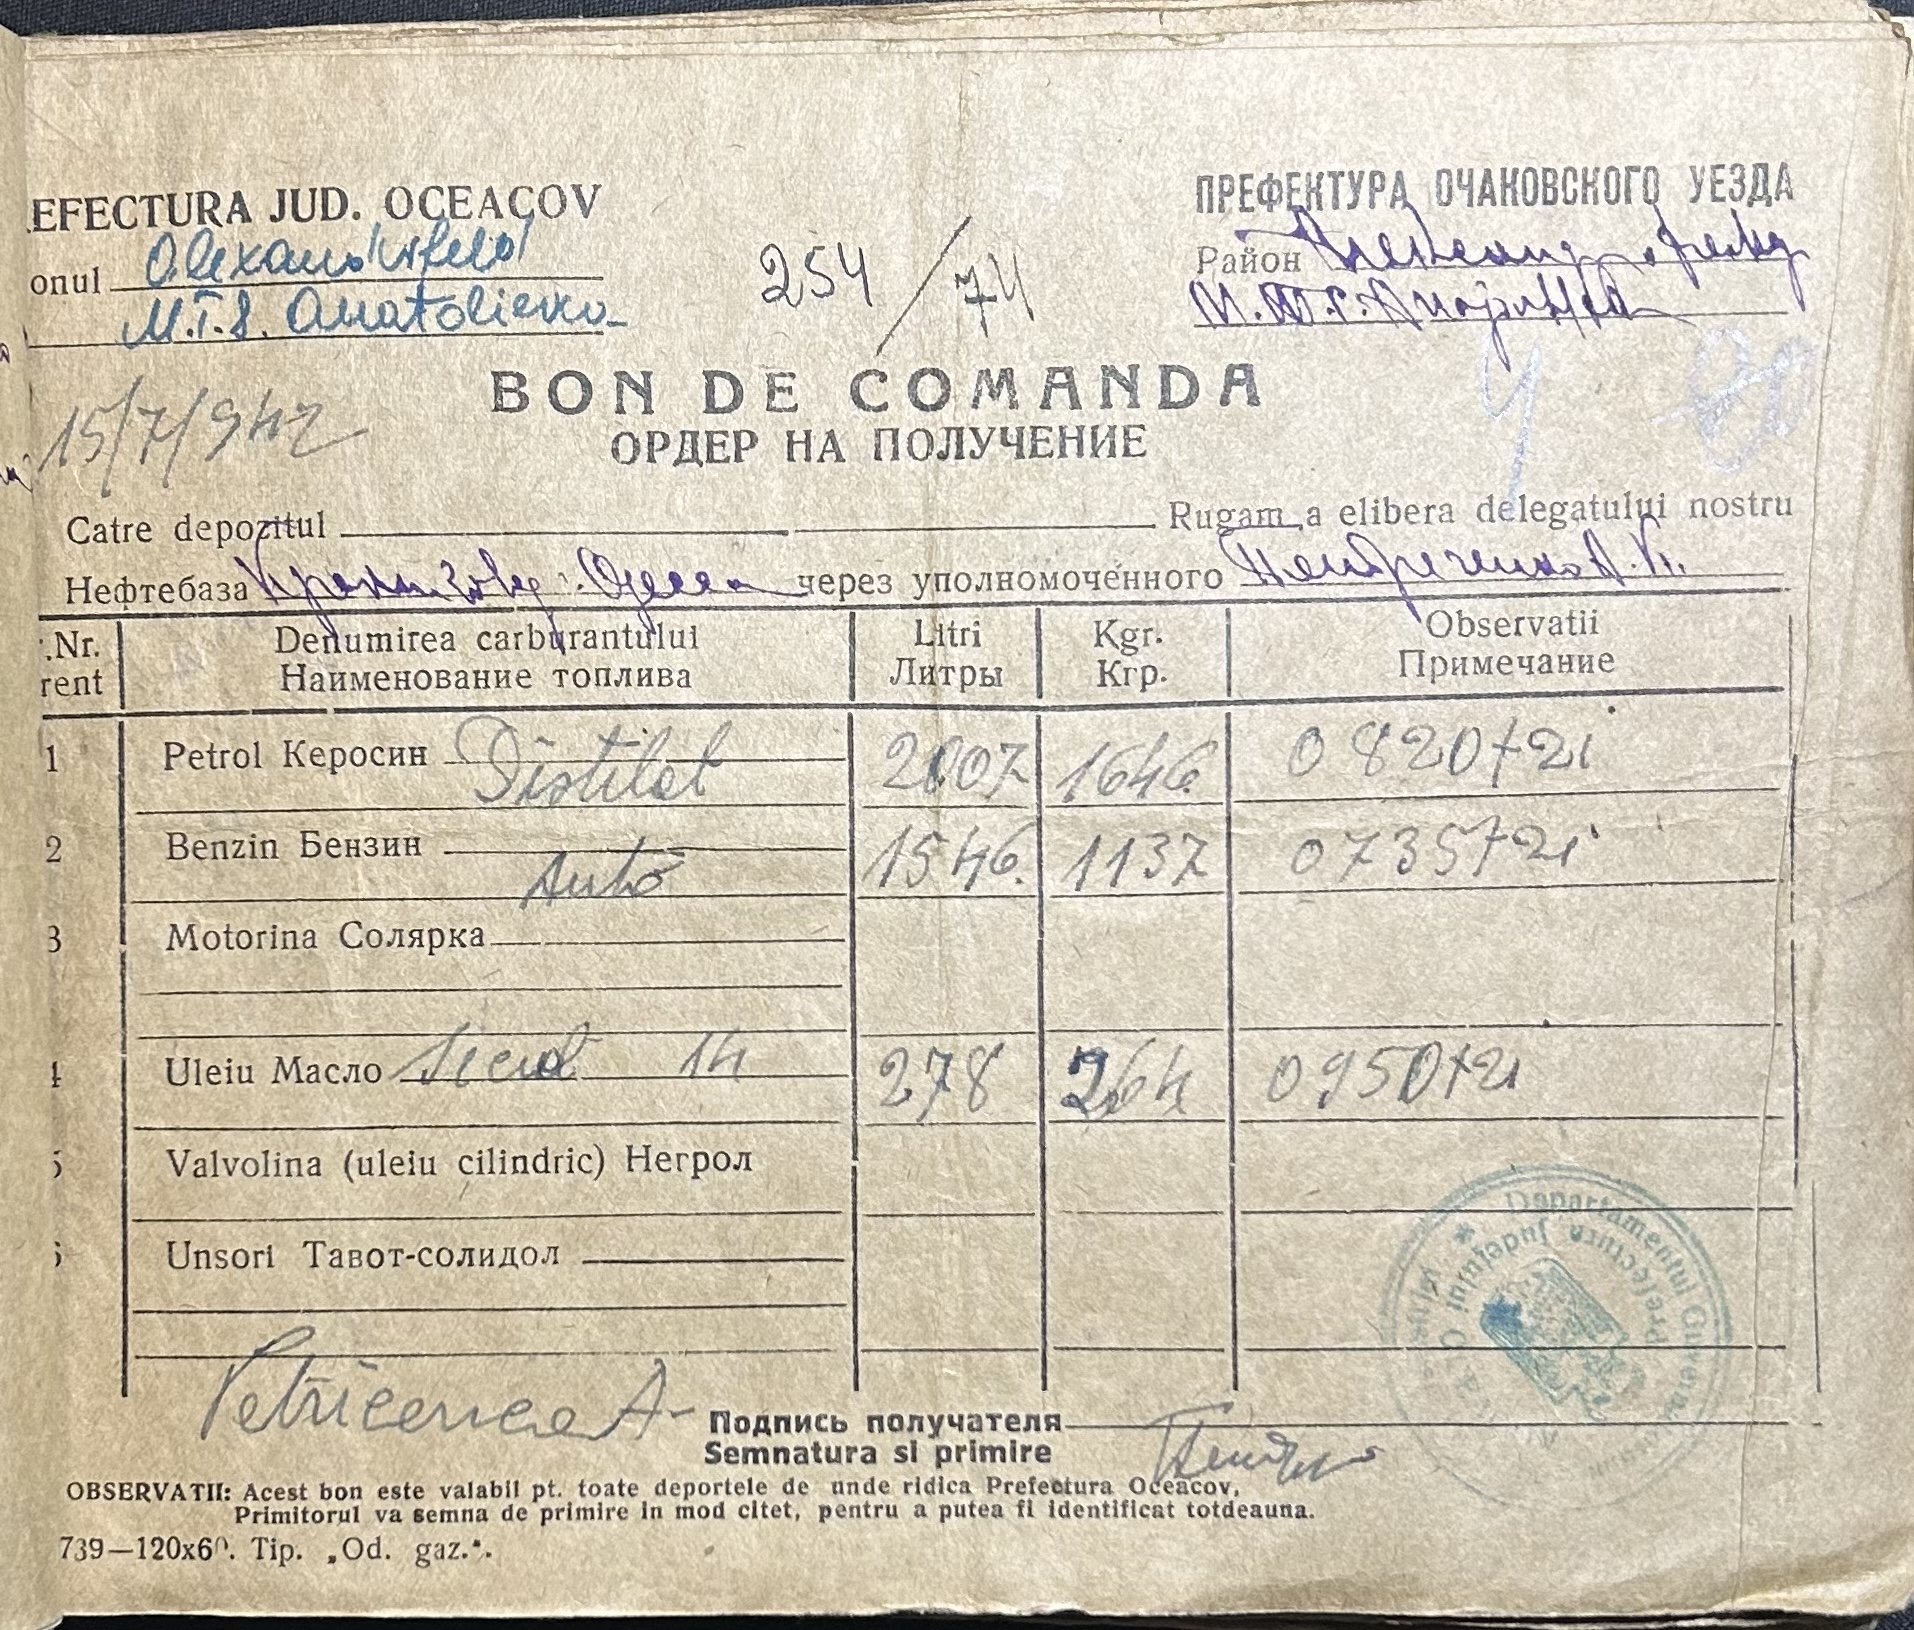 EFECTURA JUD. OCEACOV
ПРЕФЕКТУРА ОЧАКОВСКОГО УЕЗДА
onul Alexanderfeld
Район
M.T.S. Anatolievca
М.Т.С.
254/74
BON DE COMANDA
15/7/942
ОРДЕР НА ПОЛУЧЕНИЕ
Catre depozitul Rugam a elibera delegatului nostru
Нефтебаза Одесса через уполномоченного А.К.
.Nr. Denumirea carburantului Litri Kgr. Observatii
rent Наименование топлива Литры Кгр. Примечание
1 Petrol Керосин Distilat 2007 1646 0820+21
2 Benzin Бензин Auto 1546 1137 0735+21
3 Motorina Солярка
4 Uleiu Масло 14 278 264 0950+21
5 Valvolina (uleiu cilindric) Негрол
Unsori Тавот-солидол
Departamentul
Prefectura Județului
Petricenco A-
Подпись получателя
Semnatura si primire
OBSERVATII: Acest bon este valabil pt. toate deportele de unde ridica Prefectura Oceacov,
Primitorul va semna de primire in mod citet, pentru a putea fi identificat totdeauna.
739—120x60. Tip. „Od. gaz.".